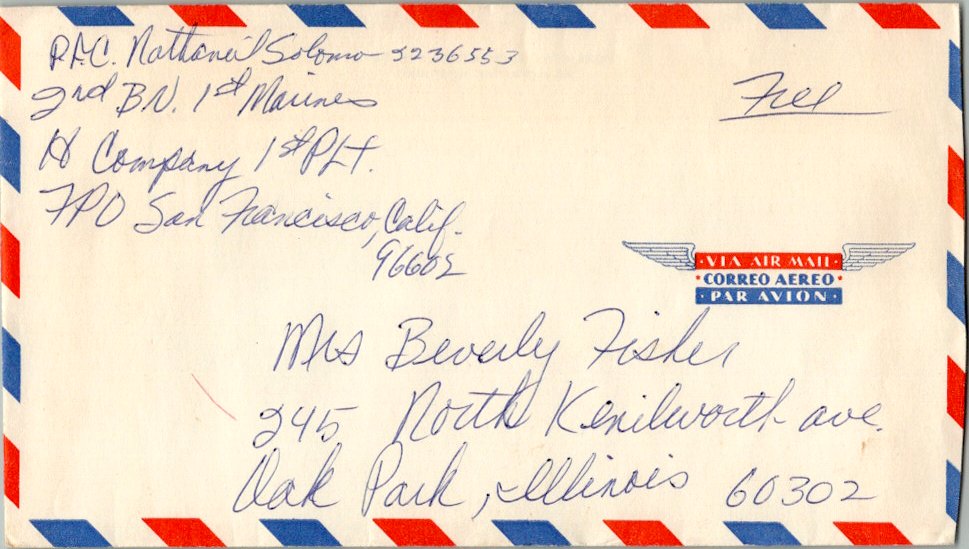 P.F.C. Nathaneil Solomo 2236553
2nd B.N. 1st Marines
H Company 1st PLt.
FPO San Francisco, Calif.
96602
Free
VIA AIR MAIL
CORREO AEREO
PAR AVION
Mrs Beverly Fisher
245 North Kenilworth ave.
Oak Park, Illinois 60302